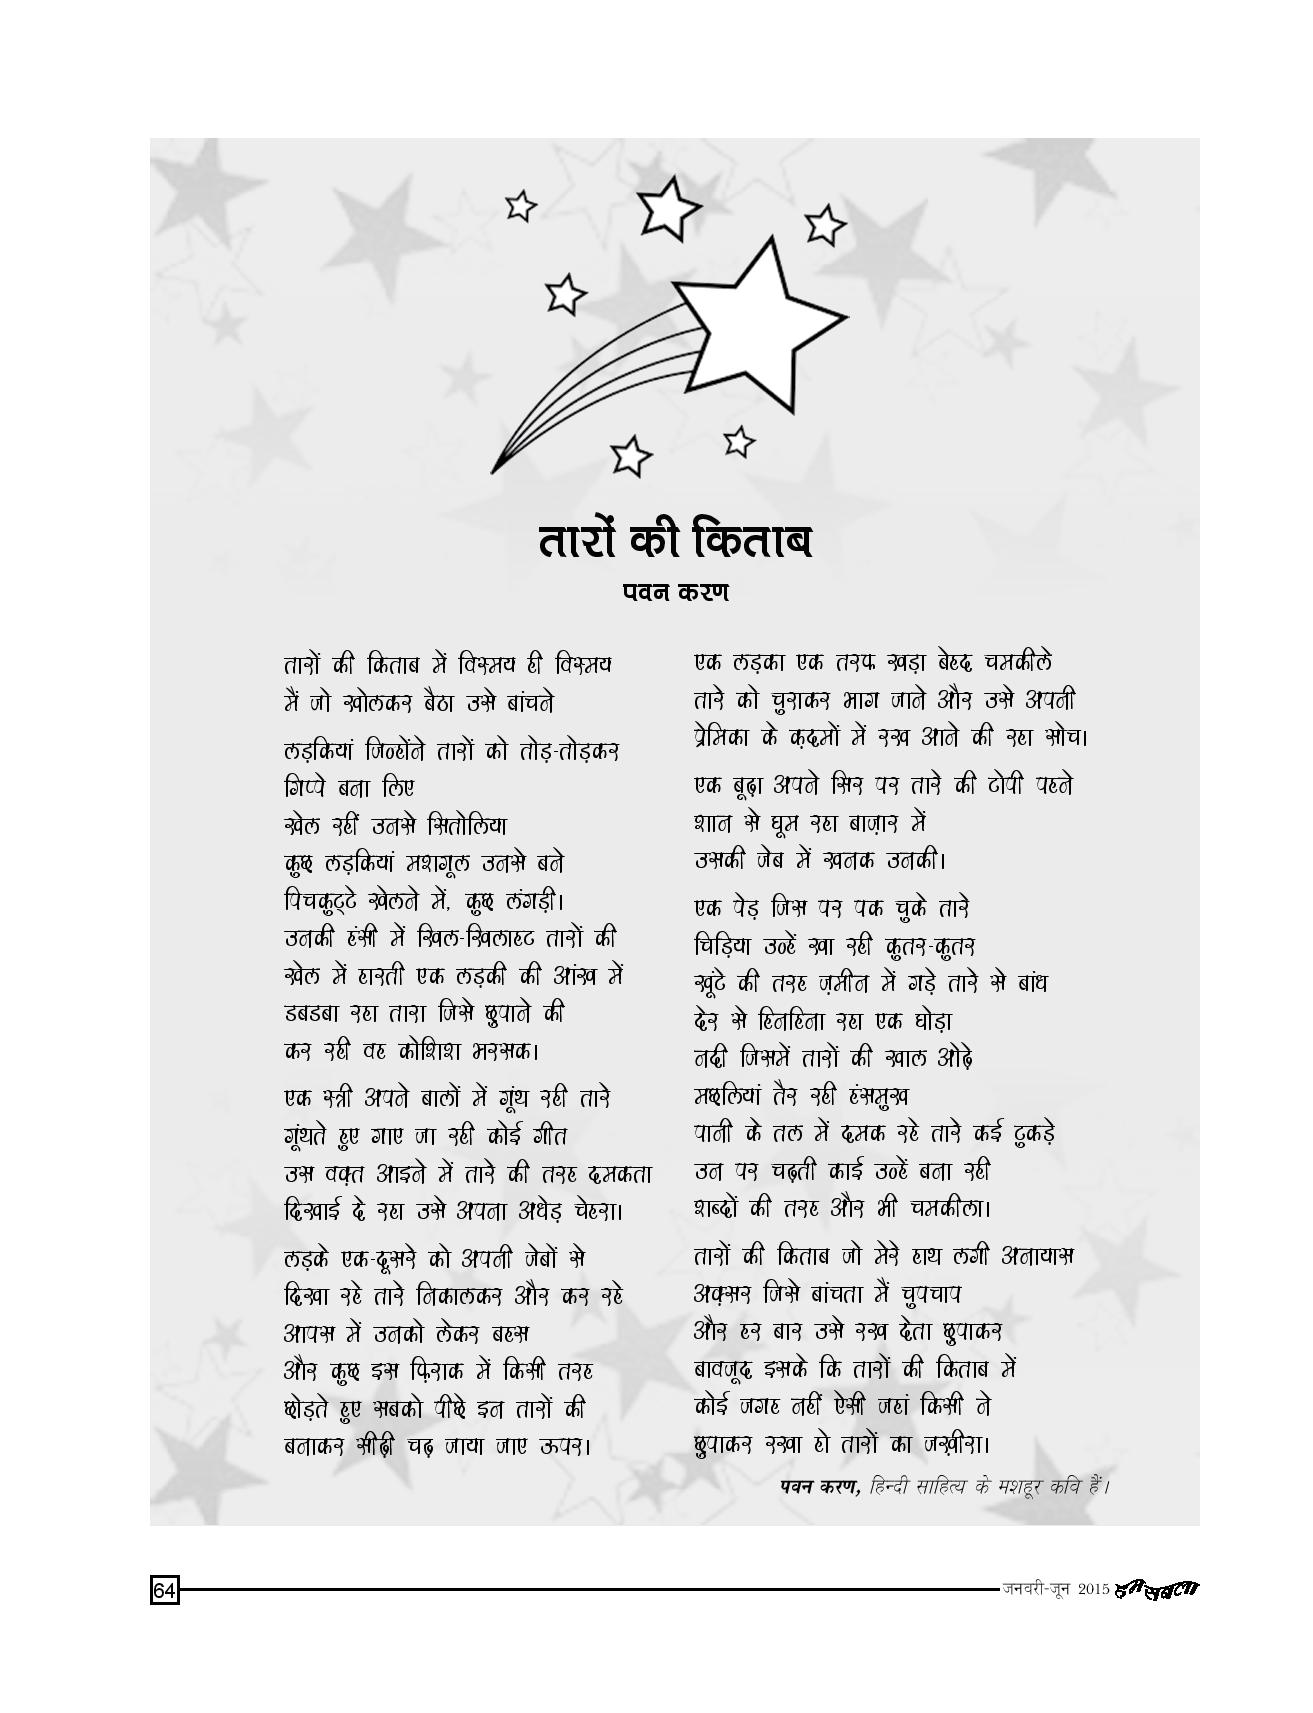 तारों की किताब
पवन करण
तारों की किताब में विस्मय ही विस्मय
मैं जो खोलकर बैठा उसे बांचने
लड़कियां जिन्होंने तारों को तोड़-तोड़कर
गिप्पे बना लिए
खेल रहीं उनसे सितोलिया
कुछ लड़कियां मशगूल उनसे बने
पिचकुट्टे खेलने में, कुछ लंगड़ी।
उनकी हंसी में खिल-खिलाहट तारों की
खेल में हारती एक लड़की की आंख में
डबडबा रहा तारा जिसे छुपाने की
कर रही वह कोशिश भरसक।
एक स्त्री अपने बालों में गूंथ रही तारे
गूंथते हुए गाए जा रही कोई गीत
उस वक़्त आइने में तारे की तरह दमकता
दिखाई दे रहा उसे अपना अधेड़ चेहरा।
लड़के एक-दूसरे को अपनी जेबों से
दिखा रहे तारे निकालकर और कर रहे
आपस में उनको लेकर बहस
और कुछ इस फ़िराक में किसी तरह
छोड़ते हुए सबको पीछे इन तारों की
बनाकर सीढ़ी चढ़ जाया जाए ऊपर।
एक लड़का एक तरफ खड़ा बेहद चमकीले
तारे को चुराकर भाग जाने और उसे अपनी
प्रेमिका के क़दमों में रख आने की रहा सोच।
एक बूढ़ा अपने सिर पर तारे की टोपी पहने
शान से घूम रहा बाज़ार में
उसकी जेब में खनक उनकी।
एक पेड़ जिस पर पक चुके तारे
चिड़िया उन्हें खा रही कुतर-कुतर
खूंटे की तरह ज़मीन में गड़े तारे से बांध
देर से हिनहिना रहा एक घोड़ा
नदी जिसमें तारों की खाल ओढ़े
मछलियां तैर रही हंसमुख
पानी के तल में दमक रहे तारे कई टुकड़े
उन पर चढ़ती काई उन्हें बना रही
शब्दों की तरह और भी चमकीला।
तारों की किताब जो मेरे हाथ लगी अनायास
अक्सर जिसे बांचता मैं चुपचाप
और हर बार उसे रख देता छुपाकर
बावजूद इसके कि तारों की किताब में
कोई जगह नहीं ऐसी जहां किसी ने
छुपाकर रखा हो तारों का जख़ीरा।
पवन करण, हिन्दी साहित्य के मशहूर कवि हैं।
64
जनवरी-जून 2015 हम सबला